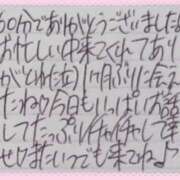 90分でありがとうございました
お忙しい中来てくれてあり
がとね(泣)1ヶ月ぶりに会え
たね♡今日もいっぱいお話
してたっぷりイチャイチャして幸
せ♡またいつでも来てね♪